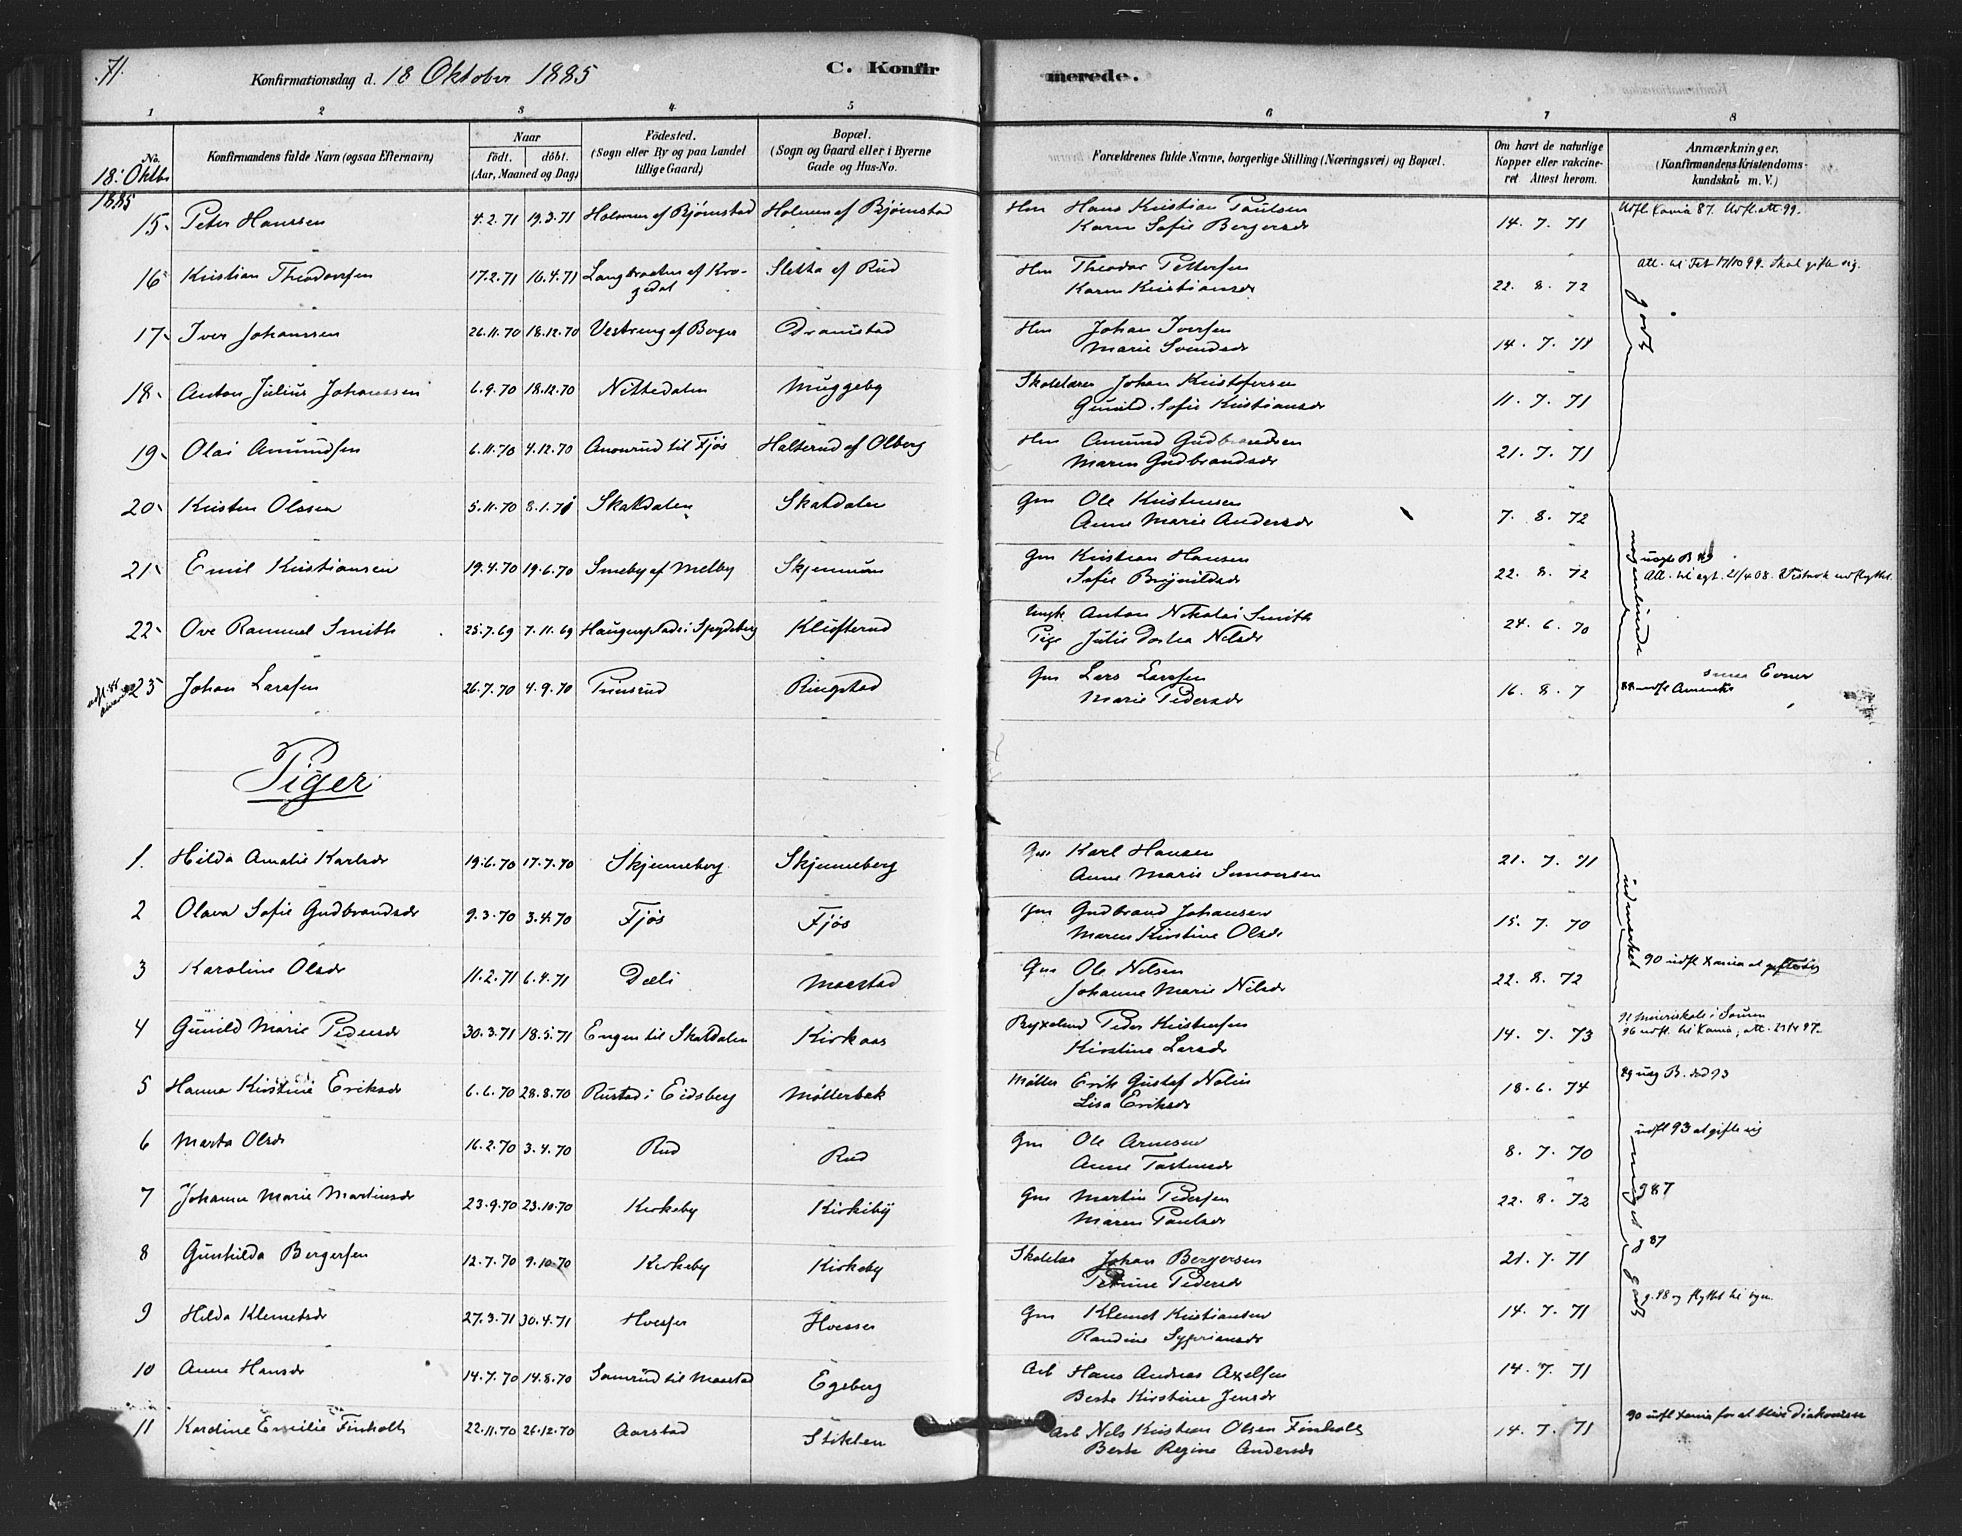 71.
Konfirmationsdag d. 18 Oktober 1885
C. Konfirmerede.
1 2 3 4 5 6 7 8
No.
Konfirmandens fulde Navn (ogsaa Efternavn)
Naar
födt. döbt.
(Aar, Maaned og Dag)
Födested.
(Sogn eller By og paa Landet tillige Gaard)
Bopæl.
(Sogn og Gaard eller i Byerne Gade og Hus-No.
Forældrenes fulde Navne, borgerlige Stilling (Næringsvei) og Bopæl.
Om havt de naturlige Kopper eller vakcineret Attest herom.
Anmærkninger.
(Konfirmandens Kristendomskundskab m. V.)
18. Oktbr
1885
15 Peter Hanssen 4.2.71 19.3.71 Holmen af Bjørnstad Holmen af Bjørnstad Hm Hans Kristian Paulsen 14.7.71 Udfl. Xania 87. Udfl. att 99.
Karen Sofie Bergersdr
16 Kristian Theodorsen 17.2.71 16.4.71 Langbraaten af Krogedal Sletta af Rud Hm Theodor Pettersen 22.8.72 att. til Fet 17/10 99. Skal gifte sig.
Karen Kristiansdr
17 Iver Johanssen 26.11.70 18.12.70 Vestreng af Berger Dramstad Hm Johan Iversen 14.7.71 godt
Marie Svendsdr
18 Anton Julius Johanssen 6.9.70 18.12.70 Nittedalen Muggeby Skolelærer Johan Kristofersen 11.7.71
Gunild Sofie Kristiansdr
19 Olai Amundsen 6.11.70 4.12.70 Amonrud til Fjøs Halterud af Olberg Hm Amund Gudbrandsen 21.7.71
Maren Gudbrandsdr
20 Kristen Olssen 5.11.70 8.1.71 Skatdalen Skatdalen Gm Ole Kristensen 7.8.72
Anne Marie Andersdr
21 Emil Kristiansen 19.4.70 19.6.70 Smeby af Melby Skjennum Gm Kristian Hansen 22.8.72 Att. til egt. 21/4 08. udflyttet.
Sofie Brynildsdr
22 Ove Rommel Smith 25.7.69 7.11.69 i Spydeberg Klufterud Ungk. Anton Nikolai Smith 24.6.70
Pige Julie Dorthea Nelsdr
23 Johan Larssen 26.7.70 4.9.70 Ringstad Gm Lars Larssen 16.8.7 smaa Evner
Marie Pedersdr 88 udfl Amerika
Piger
1. Hilda Amalie Karlsdr 19.6.70 17.7.70 Skjenneberg Skjenneberg Gm Karl Hansen 21.7.71 udmerket
Anne Marie Simonsen
2 Olava Sofie Gudbrandsdr 9.3.70 3.4.70 Fjøs Fjøs Gm Gudbrand Johansen 15.7.70
Maren Kirstine Olsdr
3 Karoline Olsdr 11.2.71 6.4.71 Dæli Maastad Gm Ole Nelsen 22.8.72 90 udfl Xania at gifte sig
Johanne Marie Nilsdr
4 Gunild Marie Pedersdr 30.3.71 18.5.71 Engen til Skatdalen Kirkaas Peder Kristensen 14.7.73 91 Meieriskole i
Kirstine Larsdr 96 udfl. til Xania, att.
5 Hanna Kirstine Eriksdr 6.6.70 28.8.70 Rustad i Eidsberg Møllerbek Møller Erik Gustaf Nolin 18.6.74
Lisa Eriksdr
6 Marta Olsdr 16.2.70 3.4.70 Rud Rud Gm Ole Arnesen 8.7.70 udfl 93 at gifte sig
Anne Torstensdr
7 Johanne Marie Martinsdr 23.9.70 23.10.70 Kirkeby Kirkeby Gm Martin Pedersen 22.8.72 g 87
Maren Paulsdr meget godt
8 Gunhilda Bergersen 12.7.70 9.10.70 Kirkeby Kirkeby Skolelær Johan Bergersen 21.7.71 g 87
Petrine Pedersdr
9 Hilda Klemetsdr 27.3.71 30.4.71 Hvesser Hvesser Gm Klemet Kristiansen 14.7.71 g. 98 og flyttet til byen.
Randine Syprionsdr
10 Anne Hansdr 14.7.70 14.8.70 Somrud til Maastad Egeberg Arb Hans Andreas Axelsen 14.7.71
Berte Kirstine Jensdr
11 Karoline Emilie Finholt 22.11.70 26.12.70 Aarstad Stiklen Arb Nels Kristian Olsen Finholt 14.7.71 90 udfl Xania for at blive Diakonisse
Berte Regine Andersdr